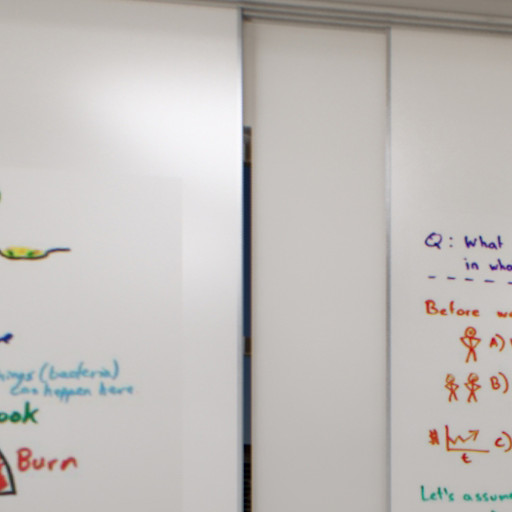 (bacteria)
can happen here
Burn
Q: What
in
Before
A)
B)
$ t C)
Let's assume